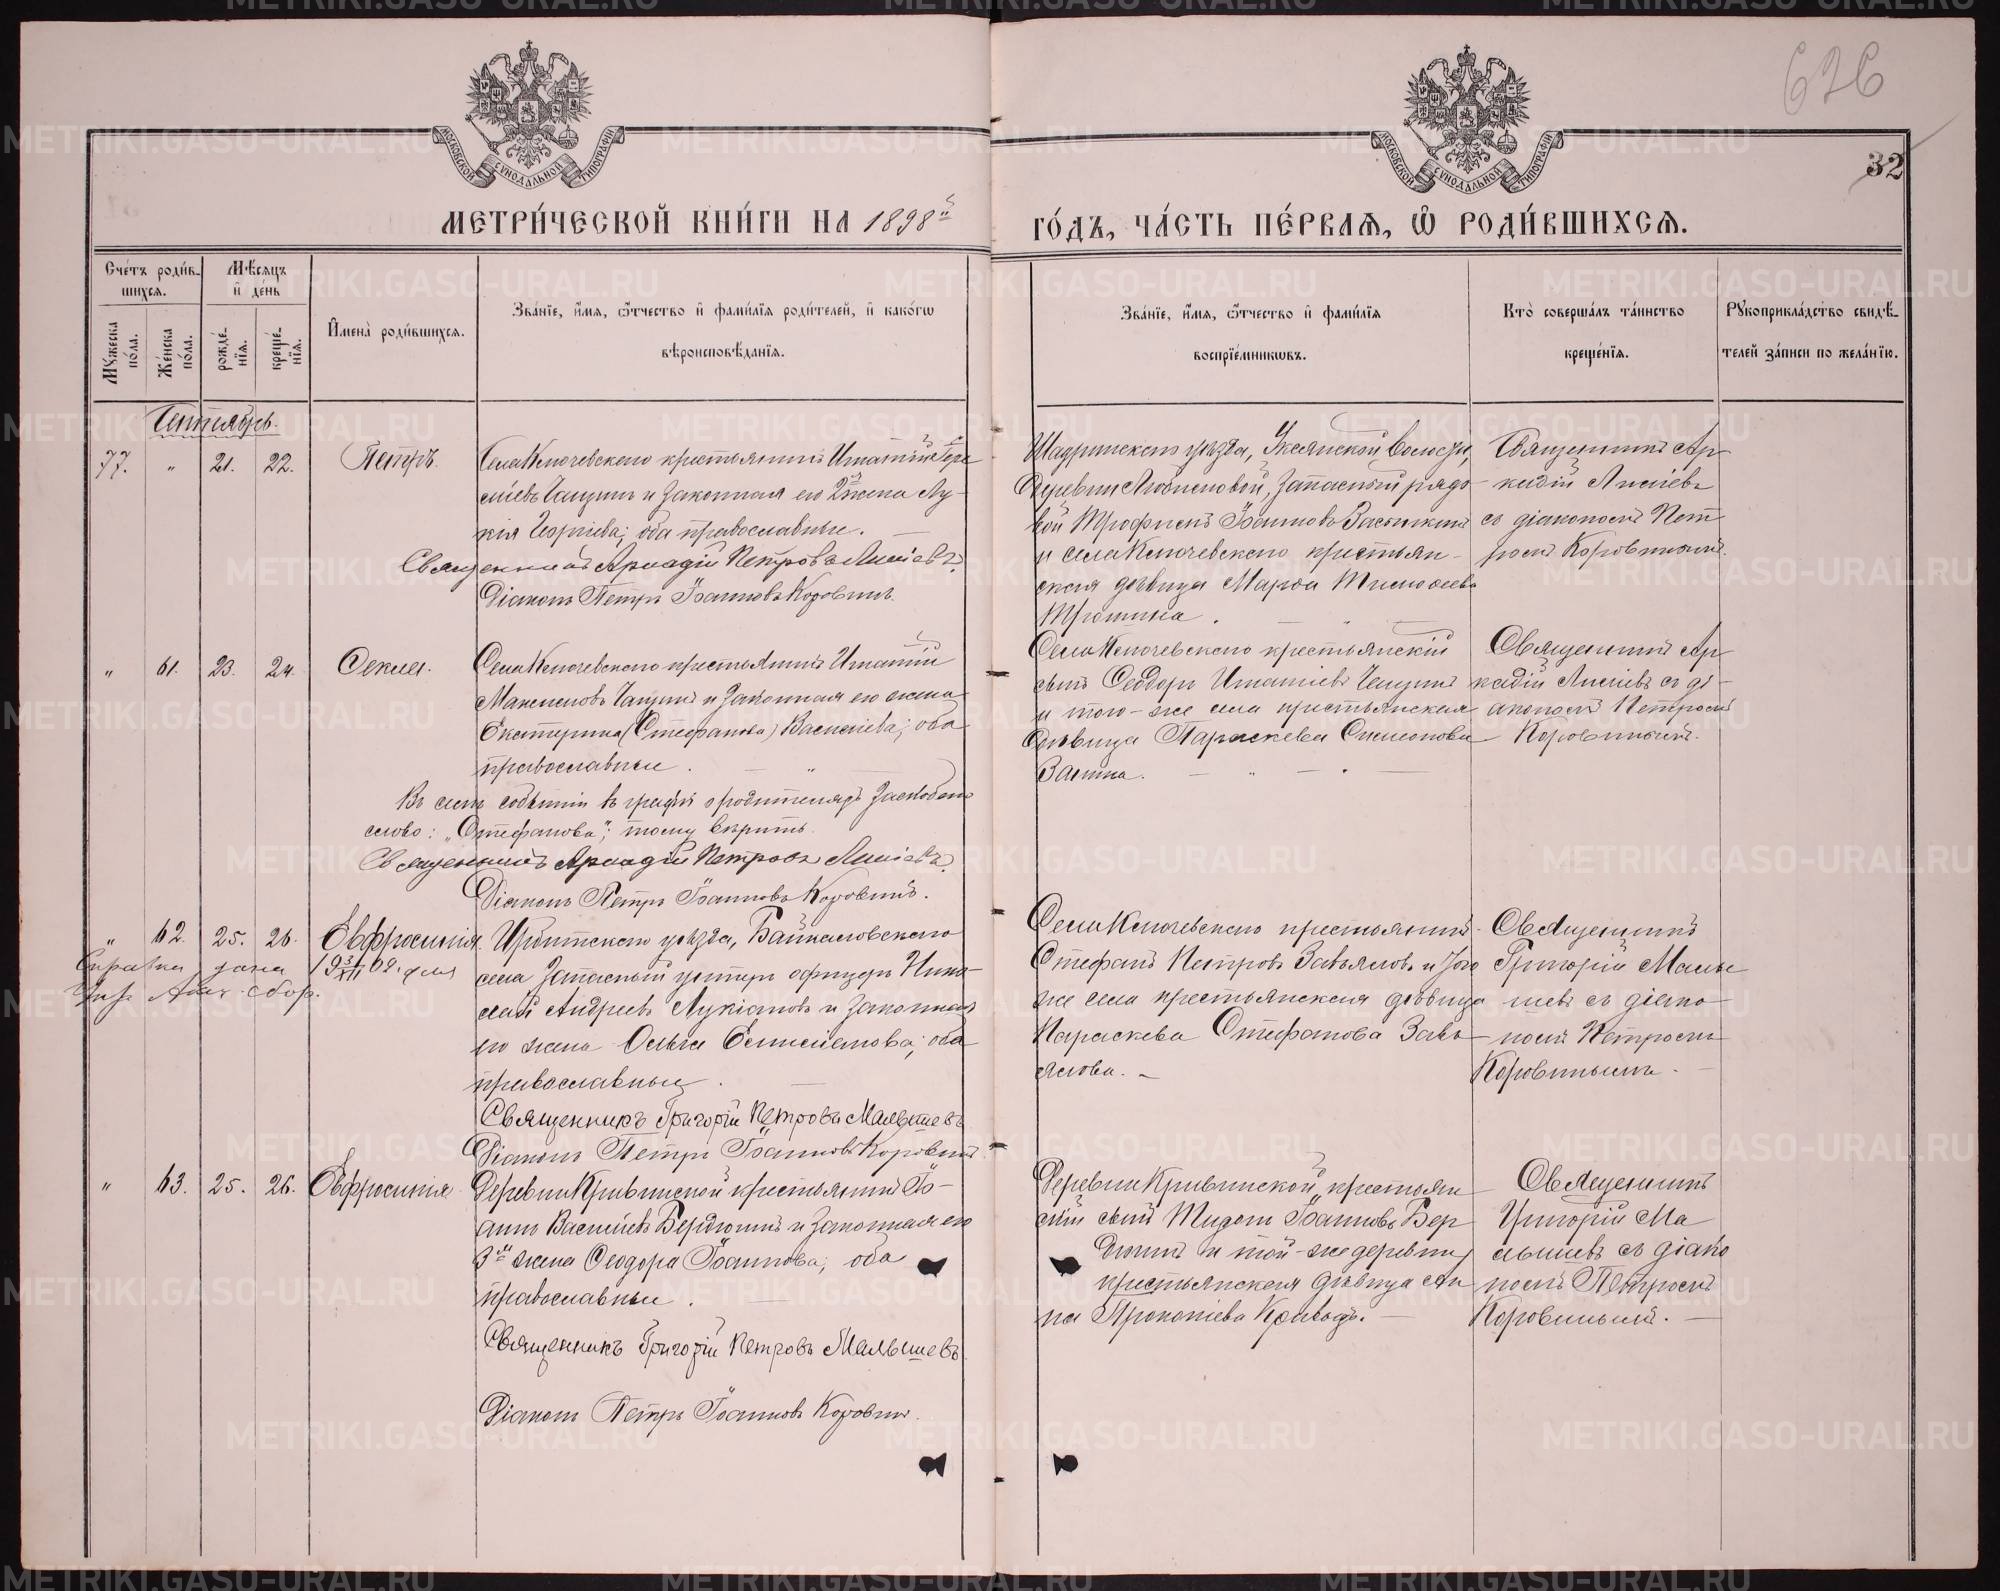 626
32
МОСКОВСКОЙ СУНОДАЛЬНОЙ ТИПОГРАФІИ
МОСКОВСКОЙ СУНОДАЛЬНОЙ ТИПОГРАФІИ
МЕТРИ́ЧЕСКОЙ КНИ́ГИ НА 1898й
ГО́ДЪ, ЧА́СТЬ ПЕ́РВАѦ, Ѽ РОДИ́ВШИХСѦ.
Сче́тъ роди́в-
шихсѧ.
Мужеска по́ла.
Же́нска по́ла.
Мѣсѧцъ
и де́нь
рожде́-
нїѧ.
креще́-
нїѧ.
Имена̀ роди́вшихсѧ.
Зва́нїе, и́мѧ, ѻ́тчество и фами́лїѧ роди́телей, и како́гѡ
вѣроисповѣ́данїѧ.
Зва́нїе, и́мѧ, ѻ́тчество и фами́лїѧ
воспрїе́мникѡвъ.
Кто̀ соверша́лъ та́инство
креще́нїѧ.
Рукоприкла́дство свидѣ́-
телей за́писи по жела́нїю.
Сентябрь.
77. " 21. 22. Петръ.
Села Ключевскаго крестьянинъ Игнатій
и законная его 2я жена Лу-
кія Георгіева; оба православные.
Священникъ Аркадій Петровъ Лисіевъ.
Діаконъ Петръ Іоанновъ Коровинъ.
Шадринскаго уѣзда, Уксянской волости,
Деревни Любимовой, запасный рядо-
вой Трофимъ Іоанновъ
и села Ключевскаго крестьян-
ская дѣвица Марѳа Тимоѳеева
Священникъ Ар-
кадій Лисіевъ
съ діакономъ Пет
ромъ Коровинымъ.
" 61. 23. 24. Ѳекла.
Села Ключевскаго крестьянинъ Игнатій
Максимовъ и законная его жена
Екатерина (Стефанова) Васильева; оба
православные.
Въ семъ событіи въ графѣ о родителяхъ заскоблено
слово: "Стефанова"; тому вѣрить.
Священникъ Аркадій Петровъ Лисіевъ.
Діаконъ Петръ Іоанновъ Коровинъ.
Села Ключевскаго крестьянскій
сынъ Ѳеодоръ Игнатіевъ
и того-же села крестьянская
дѣвица Параскева Симеонова
Священникъ Ар
кадій Лисіевъ съ ді-
акономъ Петромъ
Коровинымъ.
" 62. 25. 26. Евфросинія
Справка дана
Ирбитскаго уѣзда, Байкаловскаго
села запасный унтеръ офицеръ Нико-
лай Андреевъ Лукіановъ и законная
его жена Ольга; оба
православные.
Священникъ Григорій Петровъ Малышевъ
Діаконъ Петръ Іоанновъ Коровинъ.
Села Ключевскаго крестьянинъ
Стефанъ Петровъ Завьяловъ и того
же села крестьянская дѣвица
Параскева Стефанова Завь-
ялова.
Священникъ
Григорій Малы-
шевъ съ діако-
номъ Петромъ
Коровинымъ.
" 63. 25. 26. Евфросинія
Деревни Кривинской крестьянинъ Іо-
аннъ Васильевъ Бердюгинъ и законная его
3я жена Ѳеодора Іоаннова; оба
православные.
Священникъ Григорій Петровъ Малышевъ.
Діаконъ Петръ Іоанновъ Коровинъ.
Деревни Кривинской крестьян
скій сынъ Іоанновъ Бер
дюгинъ и той-же деревни
крестьянская дѣвица Ан
на Прокопіева
Священникъ
Григорій Ма
лышевъ съ діако
номъ Петромъ
Коровинымъ.